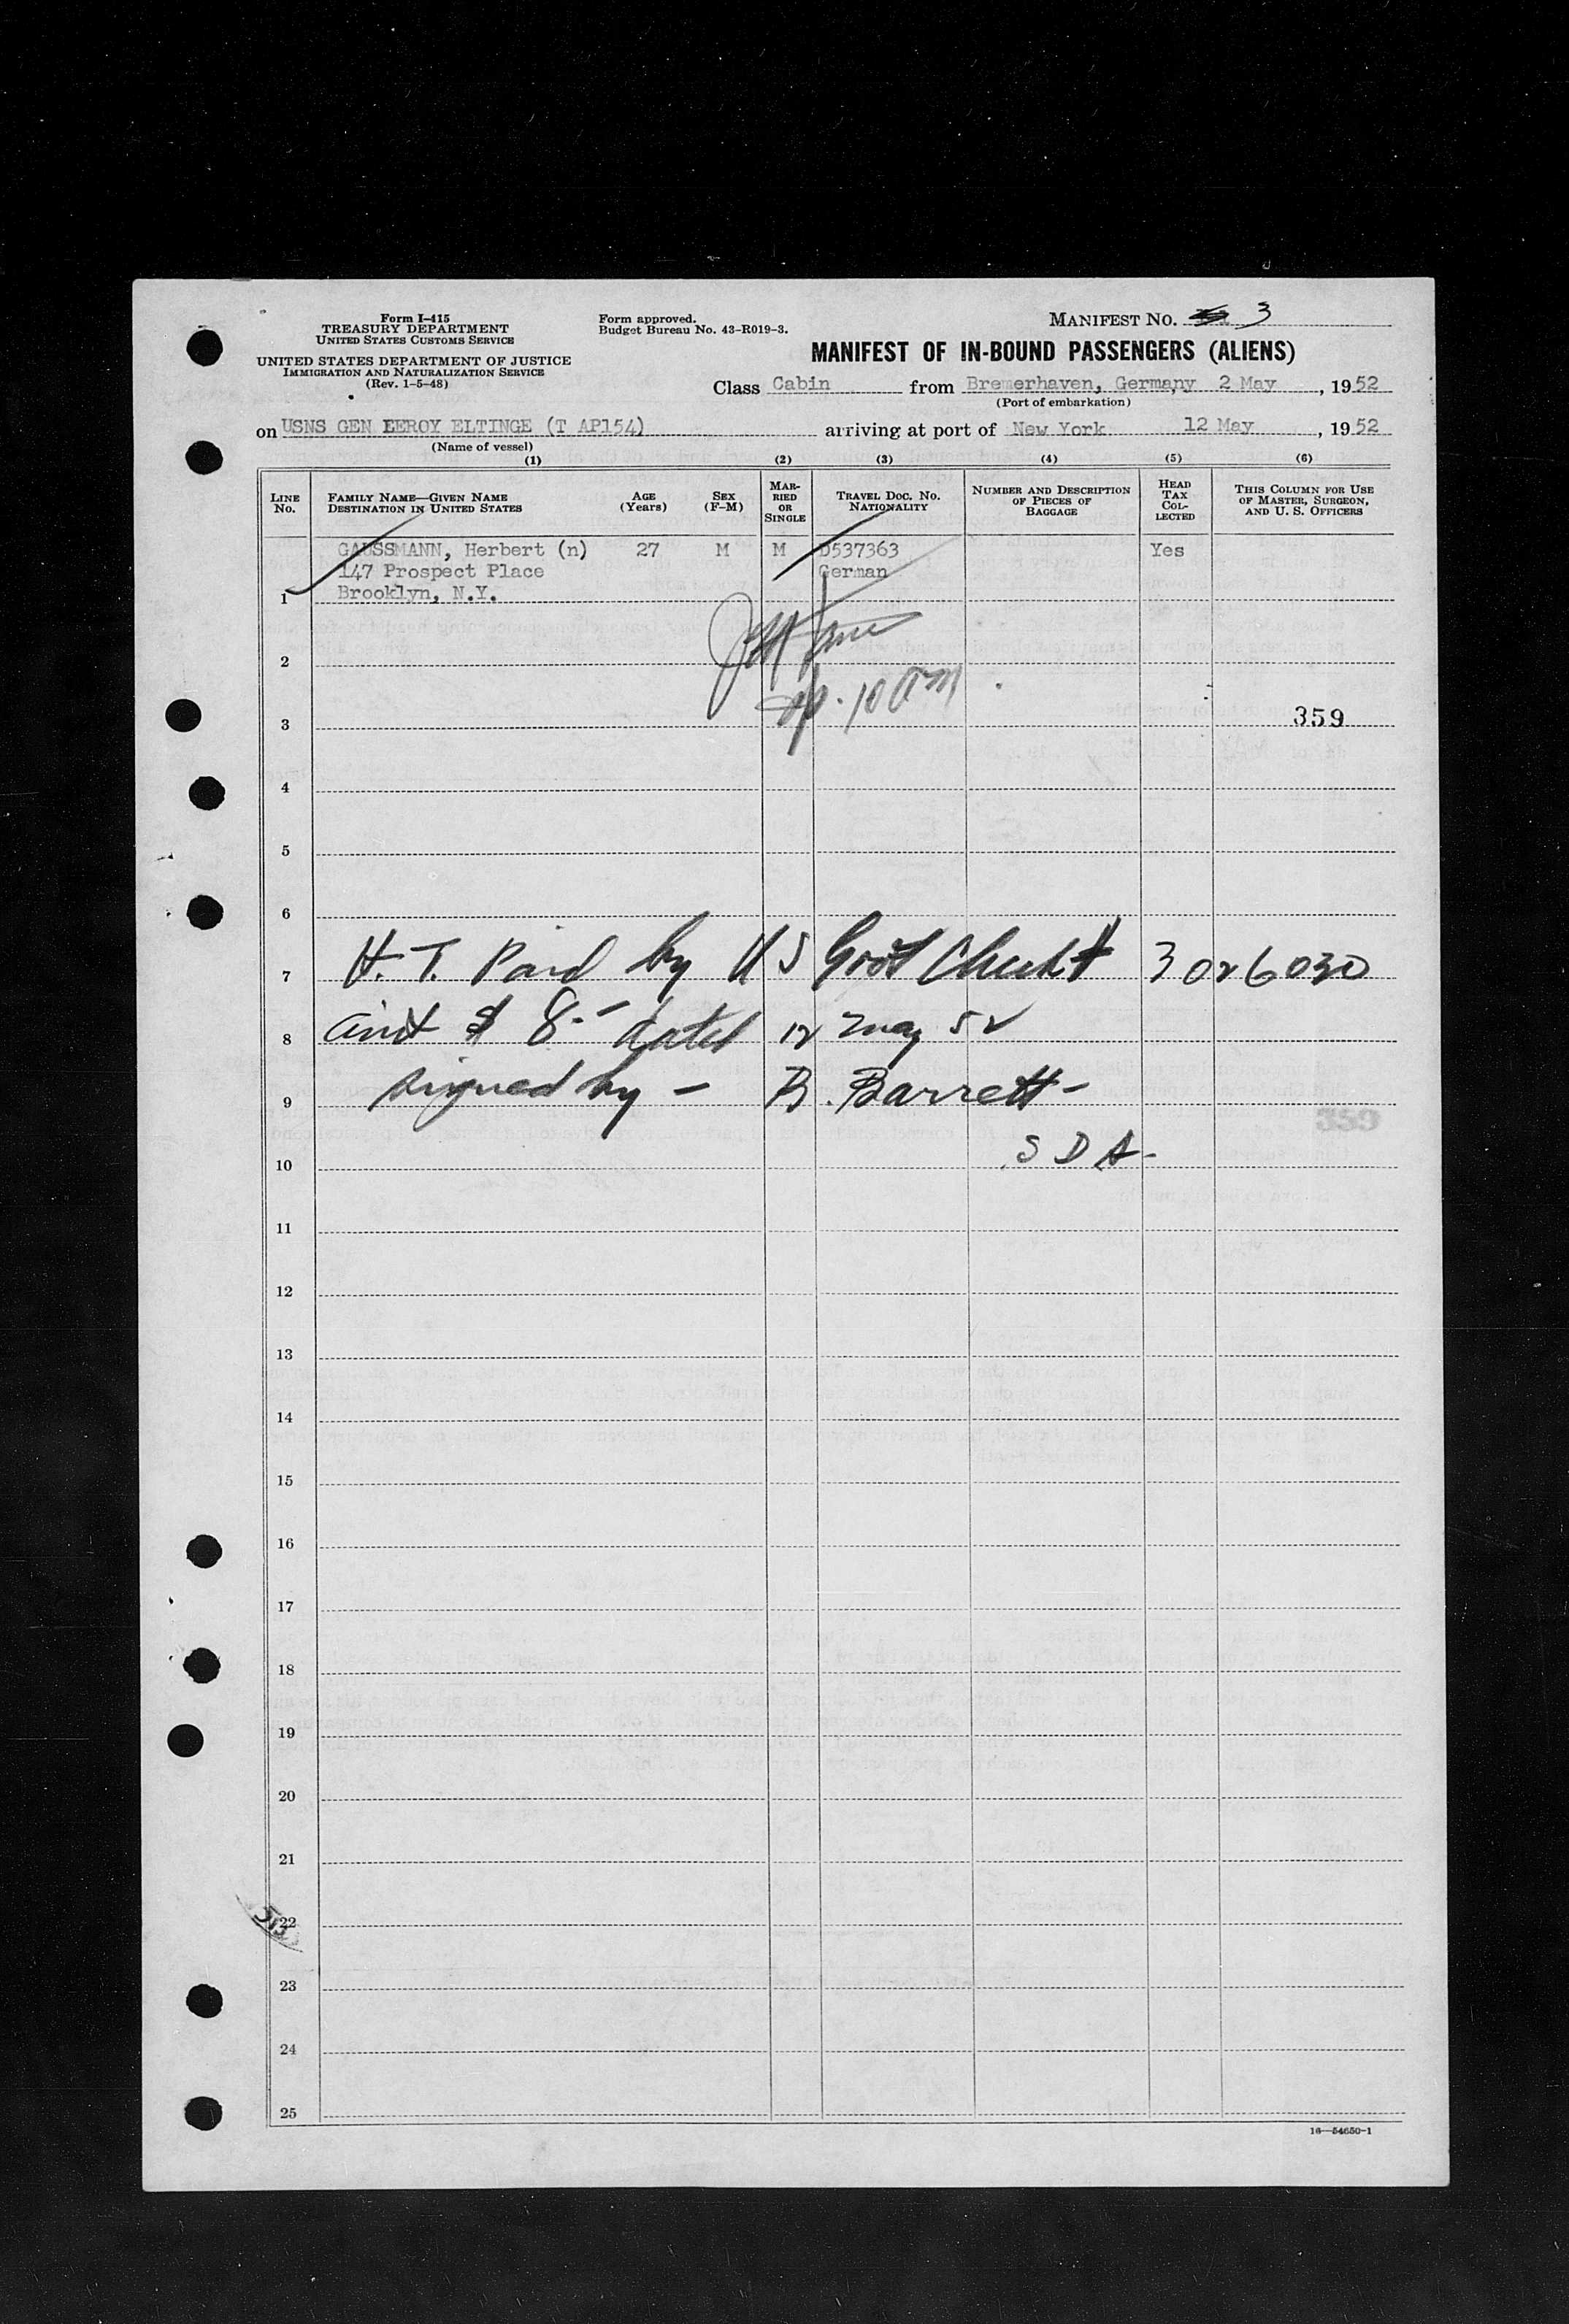 Form I-415
TREASURY DEPARTMENT
UNITED STATES CUSTOMS SERVICE
UNITED STATES DEPARTMENT OF JUSTICE
IMMIGRATION AND NATURALIZATION SERVICE
(Rev. 1-5-48)
Form approved.
Budget Bureau No. 43-R019-3.
MANIFEST NO. 3
MANIFEST OF IN-BOUND PASSENGERS (ALIENS)
Class Cabin from Bremerhaven, Germany 2 May, 1952
(Port of embarkation)
on USNS GEN LEROY ELTINGE (T AP154) arriving at port of New York 12 May, 1952
(Name of vessel)
(1) (2) (3) (4) (5) (6)
LINE No.
FAMILY NAME—GIVEN NAME
DESTINATION IN UNITED STATES
AGE (Years)
SEX (F-M)
MARRIED OR SINGLE
TRAVEL DOC. NO.
NATIONALITY
NUMBER AND DESCRIPTION OF PIECES OF BAGGAGE
HEAD TAX COLLECTED
THIS COLUMN FOR USE OF MASTER, SURGEON, AND U. S. OFFICERS
GAUSSMANN, Herbert (n) 27 M M D537363 Yes
147 Prospect Place German
1 Brooklyn, N.Y.
2
10 AM
3 359
4
5
6
7 H. T. Paid by US Govt Check # 3026030
8 amt $ 8.- dated 12 May 52
9 signed by - B. Barrett -
10 S D A -
11
12
13
14
15
16
17
18
19
20
21
22
23
24
25
16—54650-1